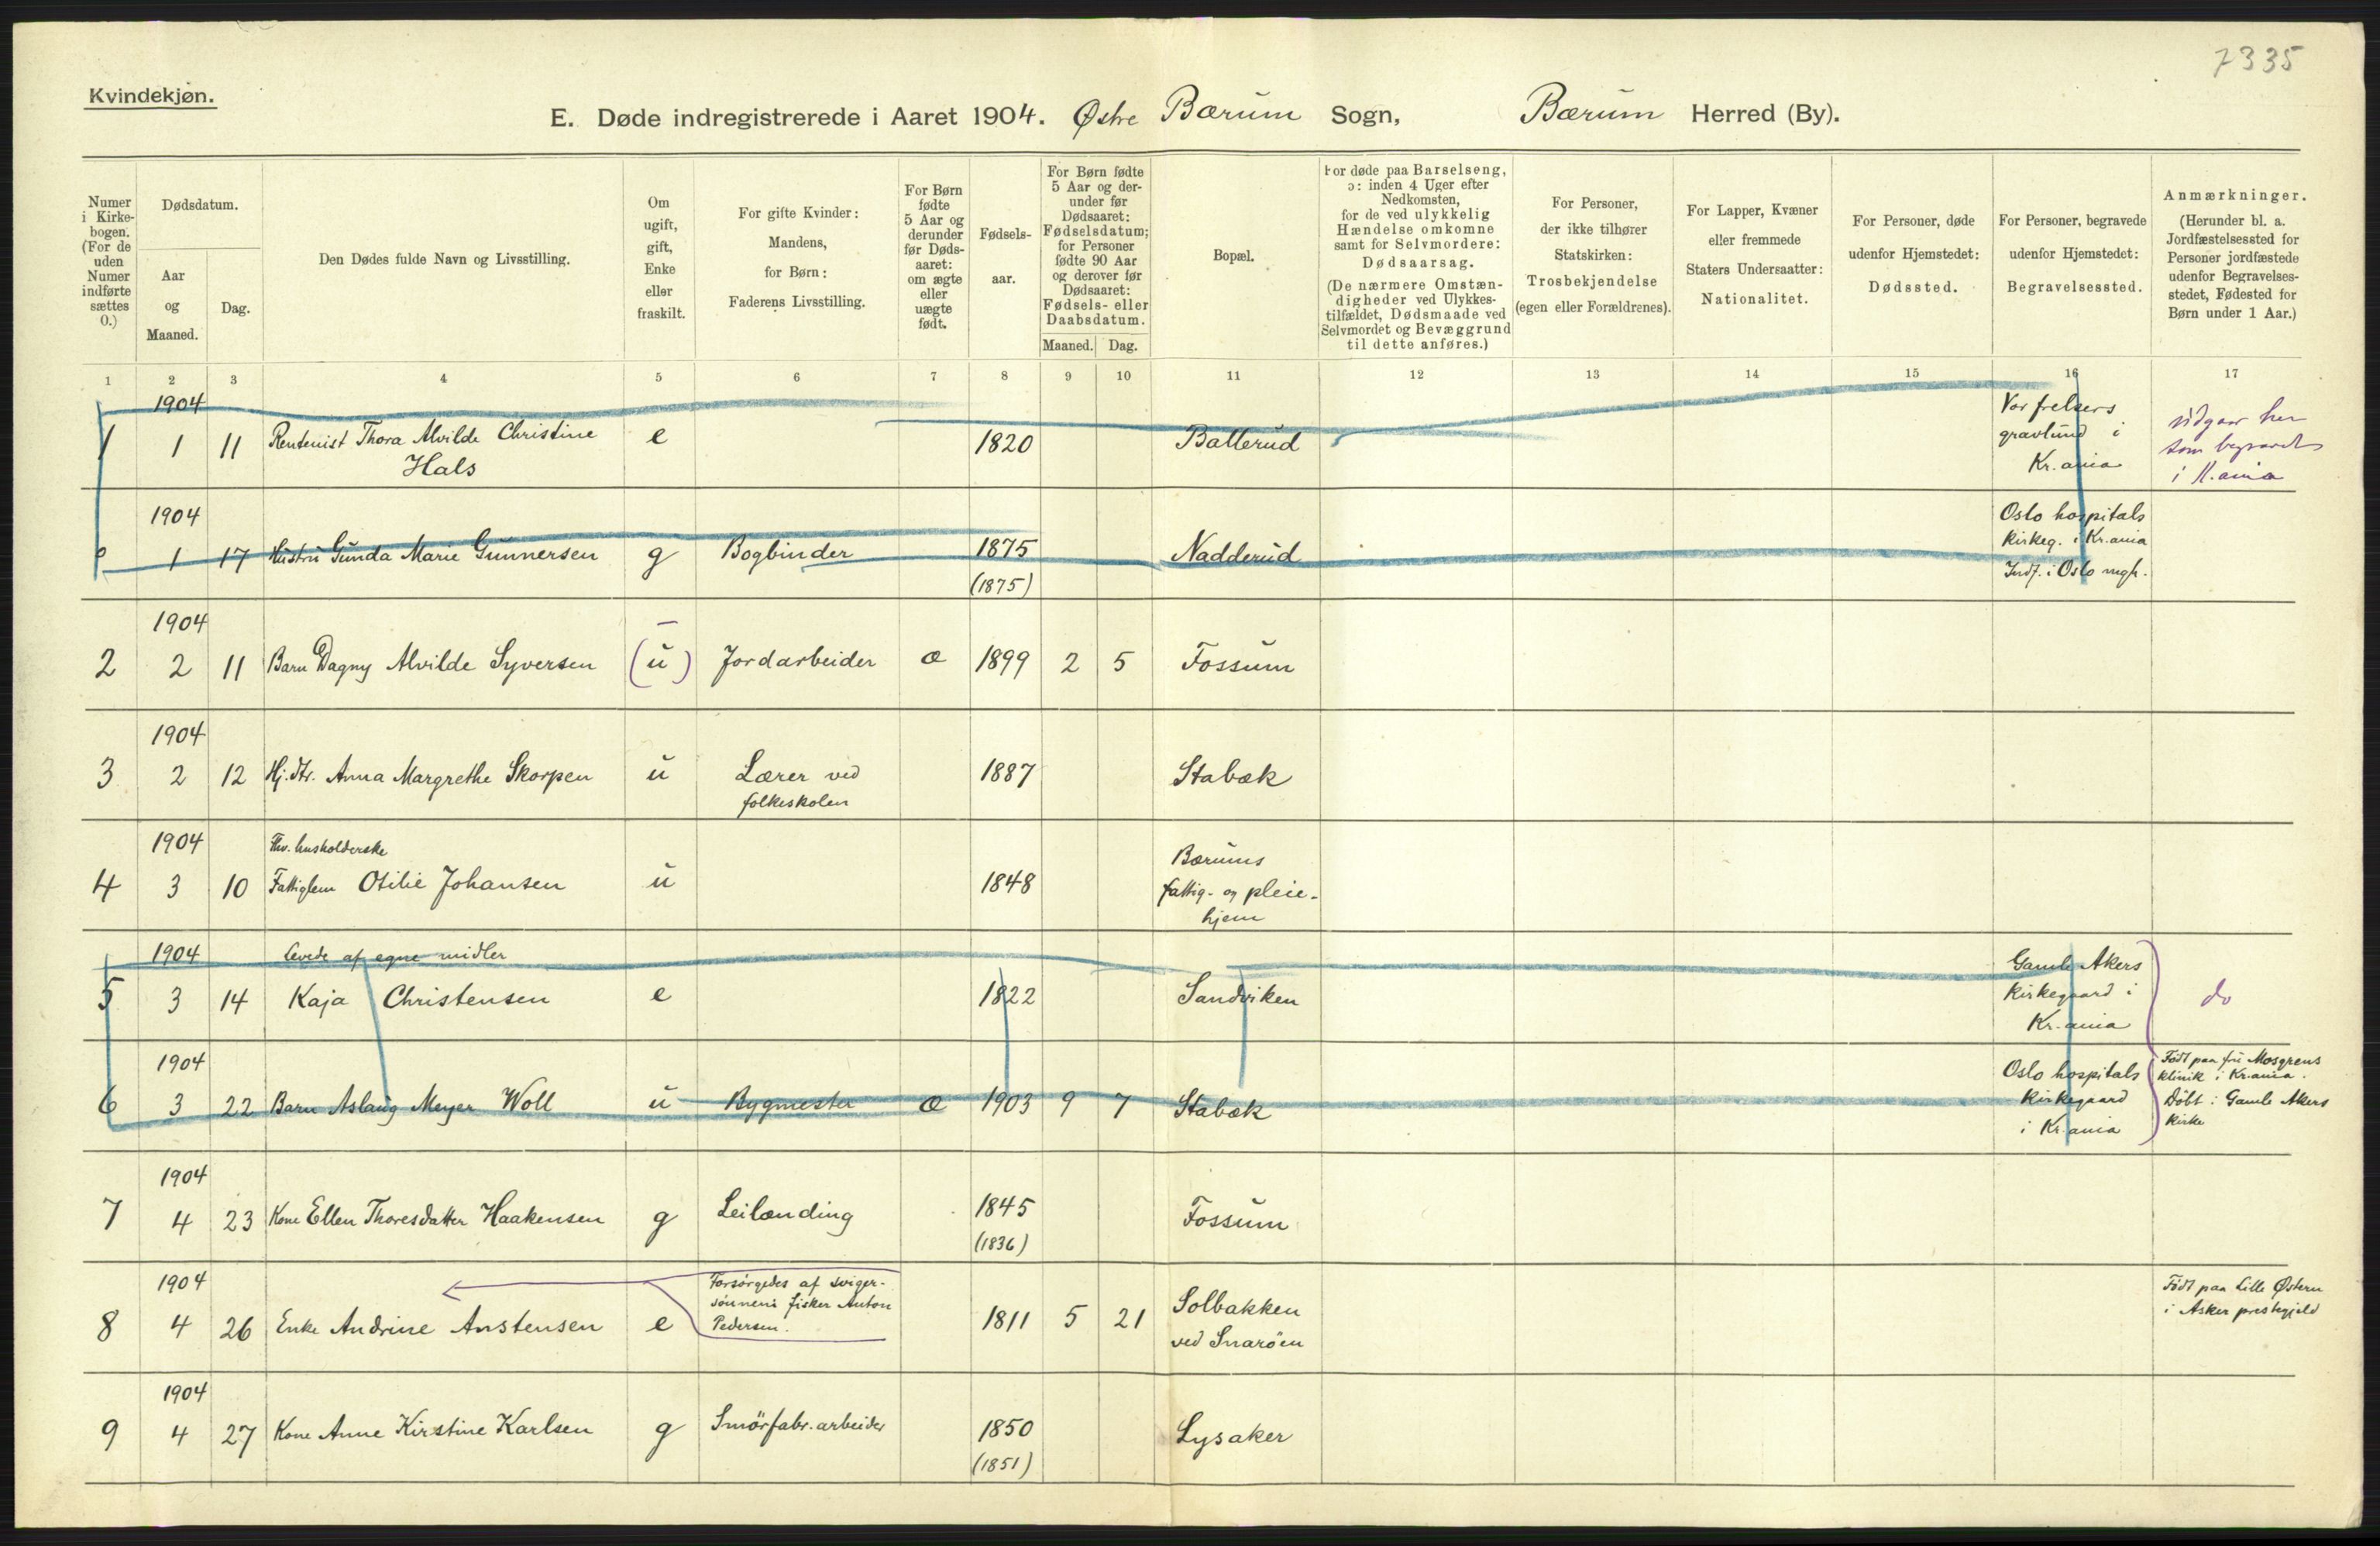 7335
Kvindekjøn.
E. Døde indregistrerede i Aaret 1904. Østre Bærum Sogn, Bærum Herred (By).
Numer
i Kirke-
bogen.
(For de
uden
Numer
indførte
sættes
0.)
Dødsdatum.
Aar
og
Maaned.
Dag.
Den Dødes fulde Navn og Livsstilling.
Om
ugift,
gift,
Enke
eller
fraskilt.
For gifte Kvinder:
Mandens,
for Børn:
Faderens Livsstilling.
For Børn
fødte
5 Aar og
derunder
før Døds-
aaret:
om ægte
eller
uægte
født.
Fødsels-
aar.
For Børn fødte
5 Aar og der-
under før
Dødsaaret:
Fødselsdatum;
for Personer
fødte 90 Aar
og derover før
Dødsaaret:
Fødsels- eller
Daabsdatum.
Maaned. Dag.
Bopæl.
For døde paa Barselseng,
ɔ: inden 4 Uger efter
Nedkomsten,
for de ved ulykkelig
Hændelse omkomne
samt for Selvmordere:
Dødsaarsag.
(De nærmere Omstæn-
digheder ved Ulykkes-
tilfældet, Dødsmaade ved
Selvmordet og Bevæggrund
til dette anføres.)
For Personer,
der ikke tilhører
Statskirken:
Trosbekjendelse
(egen eller Forældrenes).
For Lapper, Kvæner
eller fremmede
Staters Undersaatter:
Nationalitet.
For Personer, døde
udenfor Hjemstedet:
Dødssted.
For Personer, begravede
udenfor Hjemstedet:
Begravelsessted.
Anmærkninger.
(Herunder bl. a.
Jordfæstelsessted for
Personer jordfæstede
udenfor Begravelses-
stedet, Fødested for
Børn under 1 Aar.)
1 2 3 4 5 6 7 8 9 10 11 12 13 14 15 16 17
1904
1 1 11 Rentenist Thora Alvilde Christine e 1820 Ballerud
Hals
Vor frelsers
gravlund i
Kr.ania
udgaar her
som begravet
i K.ania
1904
1 17 Hustru Gunda Marie Gunnersen g Bogbinder 1875 Nadderud
(1875)
Oslo hospitals
kirkeg. i Kr.ania
Indf. i Oslo mgh.
1904
2 2 11 Barn Dagny Alvilde Syversen (u) Jordarbeider æ 1899 2 5 Fossum
1904
3 2 12 Hj.dtr. Anna Margrethe Skorpen u Lærer ved 1887 Stabæk
folkeskolen
1904 Fhv. husholderske
4 3 10 Fattiglem Otilie Johansen u 1848
Bærums
fattig- og pleie-
hjem
1904 levede af egne midler
5 3 14 Kaja Christensen e 1822 Sandviken
Gamle Akers
kirkegaard i
Kr.ania
do
1904
6 3 22 Barn Aslaug Meyer Woll u Bygmester æ 1903 9 7 Stabæk
Oslo hospitals
kirkegaard
i Kr.ania
Født paa fru Mosgrens
klinik i Kr.ania.
Døbt i Gamle Akers
kirke
1904
7 4 23 Kone Ellen Thoresdatter Haakensen g Leilænding 1845 Fossum
(1836)
1904
8 4 26 Enke Andrine Anstensen e
Forsørgedes af sviger-
sønnen: fisker Anton
Pedersen.
1811 5 21 Solbakken
ved Snarøen
Født paa Lille Østern
i Asker prestegjeld
1904
9 4 27 Kone Anne Kirstine Karlsen g Smörfabr.arbeider 1850 Lysaker
(1851)